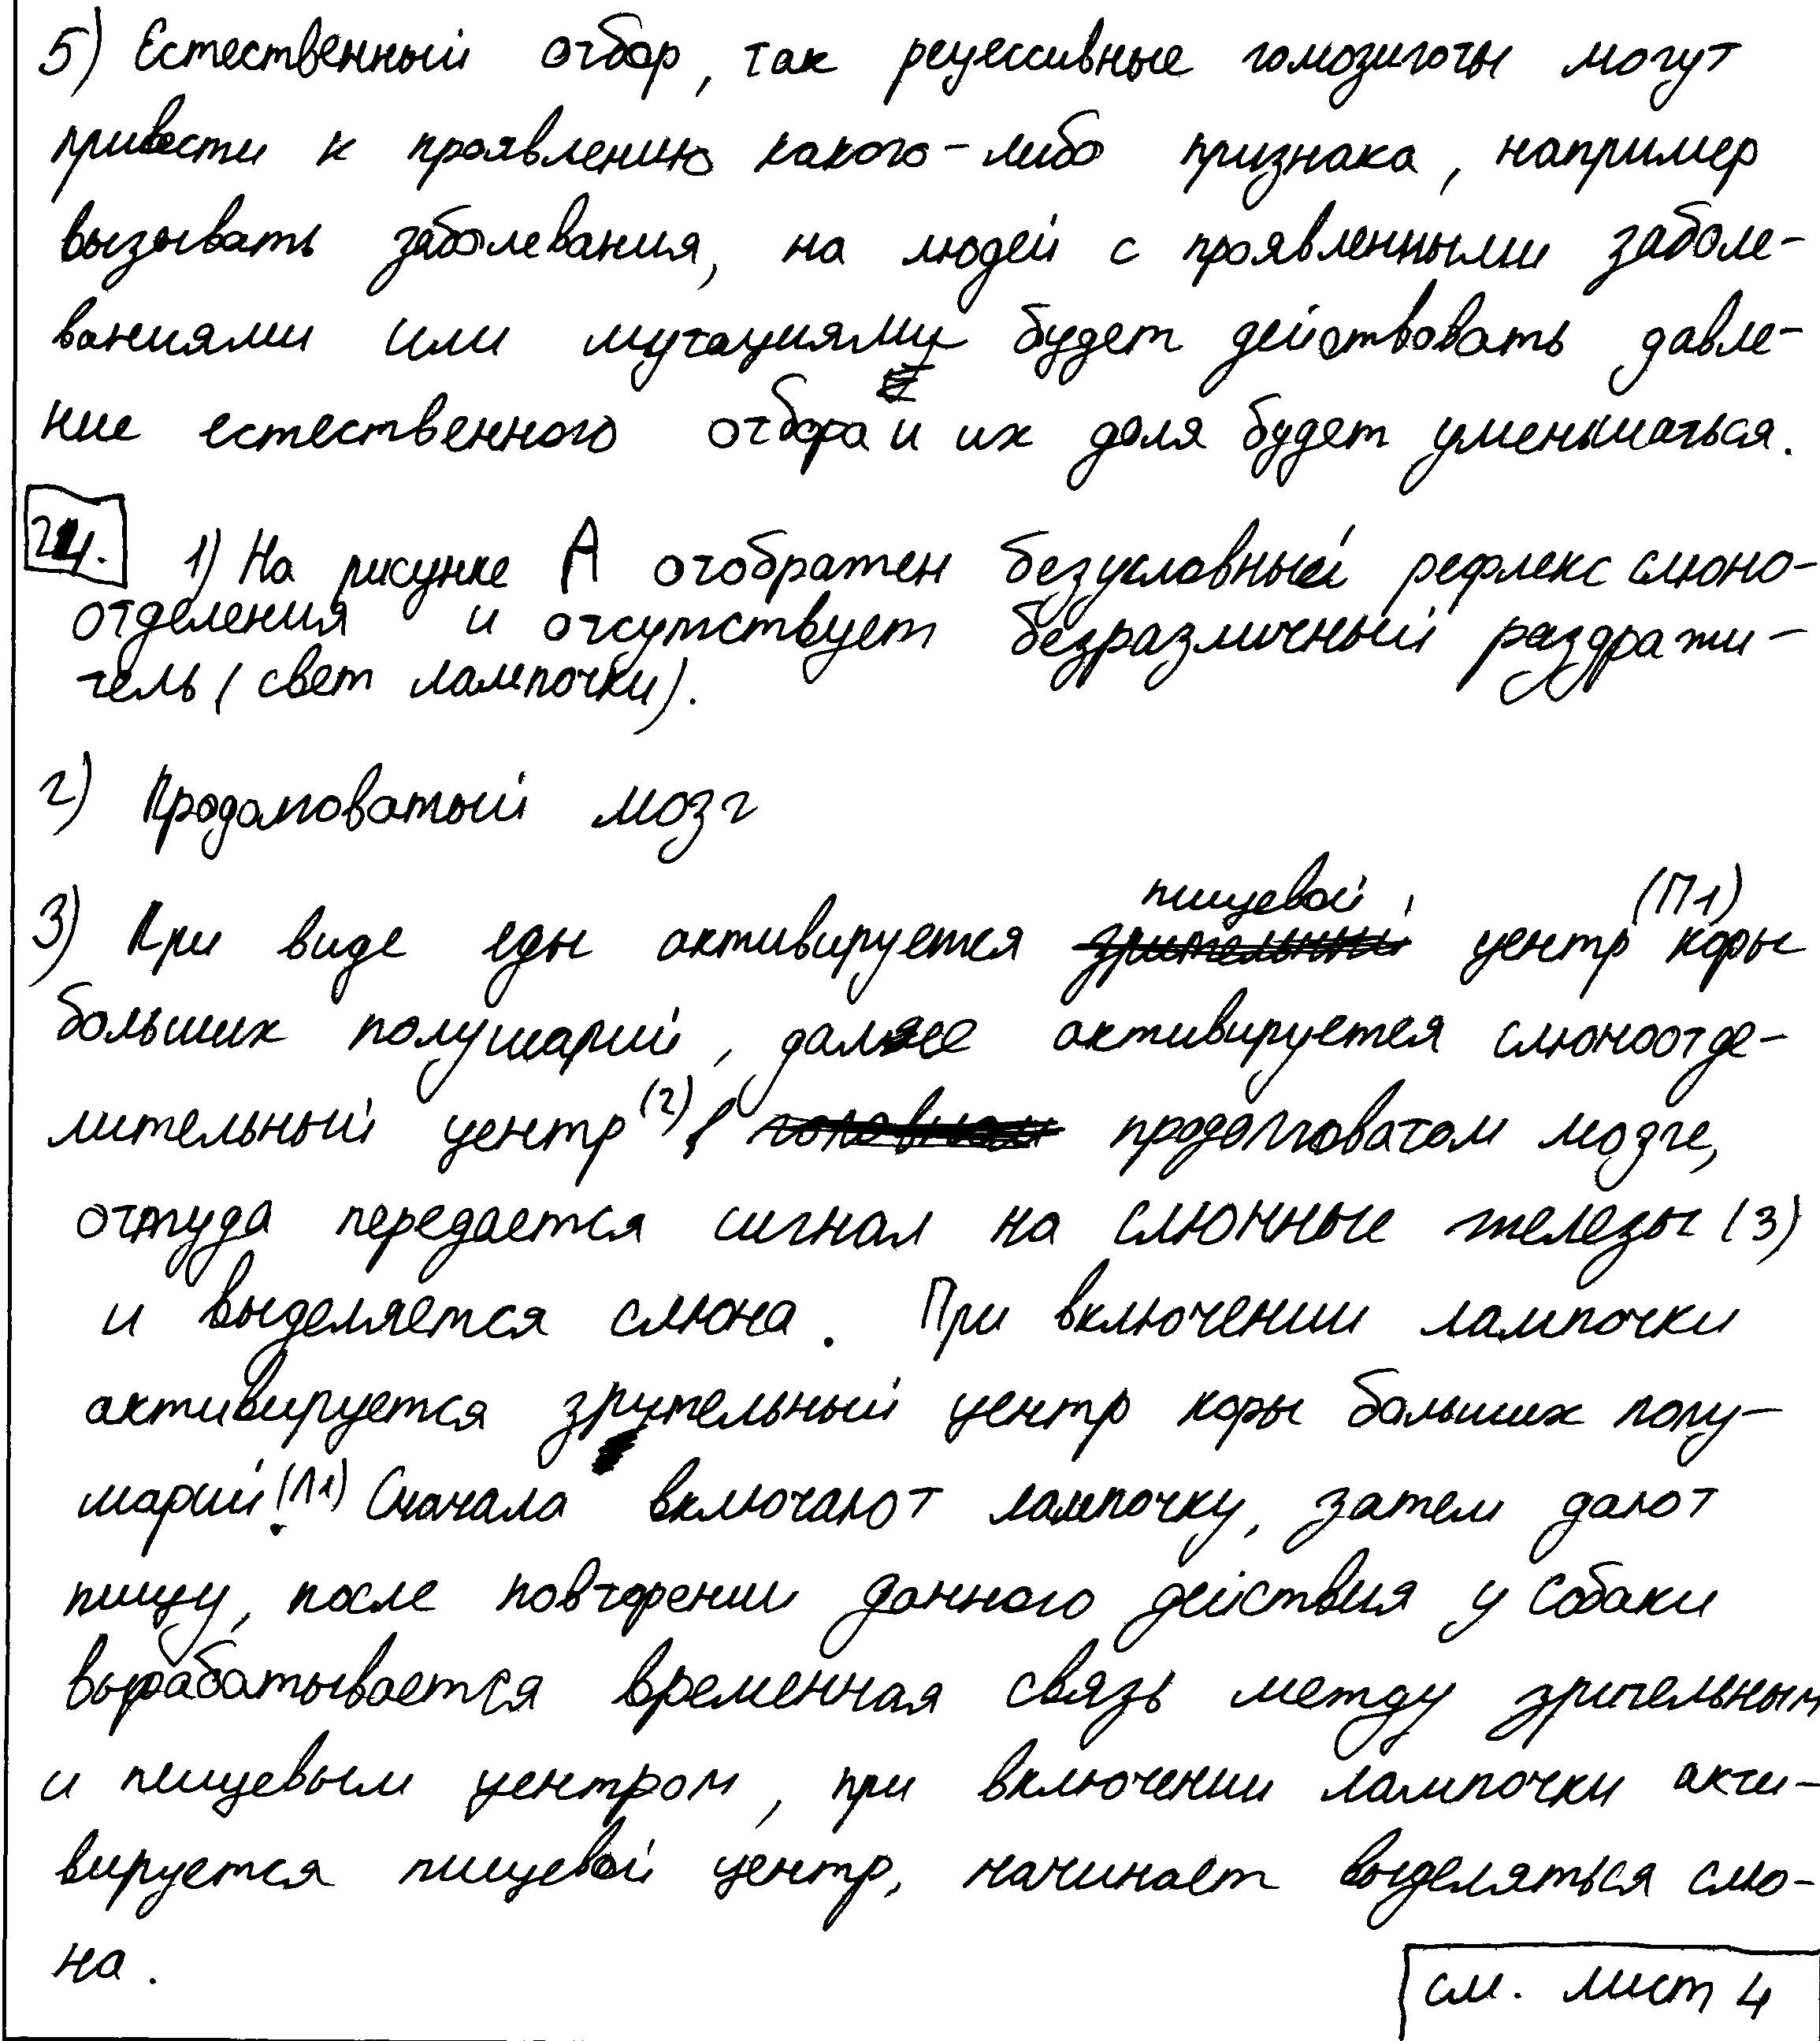 5) Естественный отбор, так рецессивные гомозиготы могут
привести к проявлению какого-либо признака, например
вызывать заболевания, на людей с проявленными заболе-
ваниями или мутациями будет действовать давле-
ние естественного отбора и их доля будет уменьшаться.
24. 1) На рисунке А отображен безусловный рефлекс слюно-
отделения и отсутствует безразличный раздражи-
тель (свет лампочки).
2) Продолговатый мозг
3) При виде еды активируется пищевой центр (П1) коры
больших полушарий, далее активируется слюноотде-
лительный центр (2) в продолговатом мозге,
откуда передается сигнал на слюнные железы (3)
и выделяется слюна. При включении лампочки
активируется зрительный центр коры больших полу-
шарий (Л1). Сначала включают лампочку, затем дают
пищу, после повторении данного действия у собаки
вырабатывается временная связь между зрительным
и пищевым центром, при включении лампочки акти-
вируется пищевой центр, начинает выделяться слю-
на.
см. лист 4